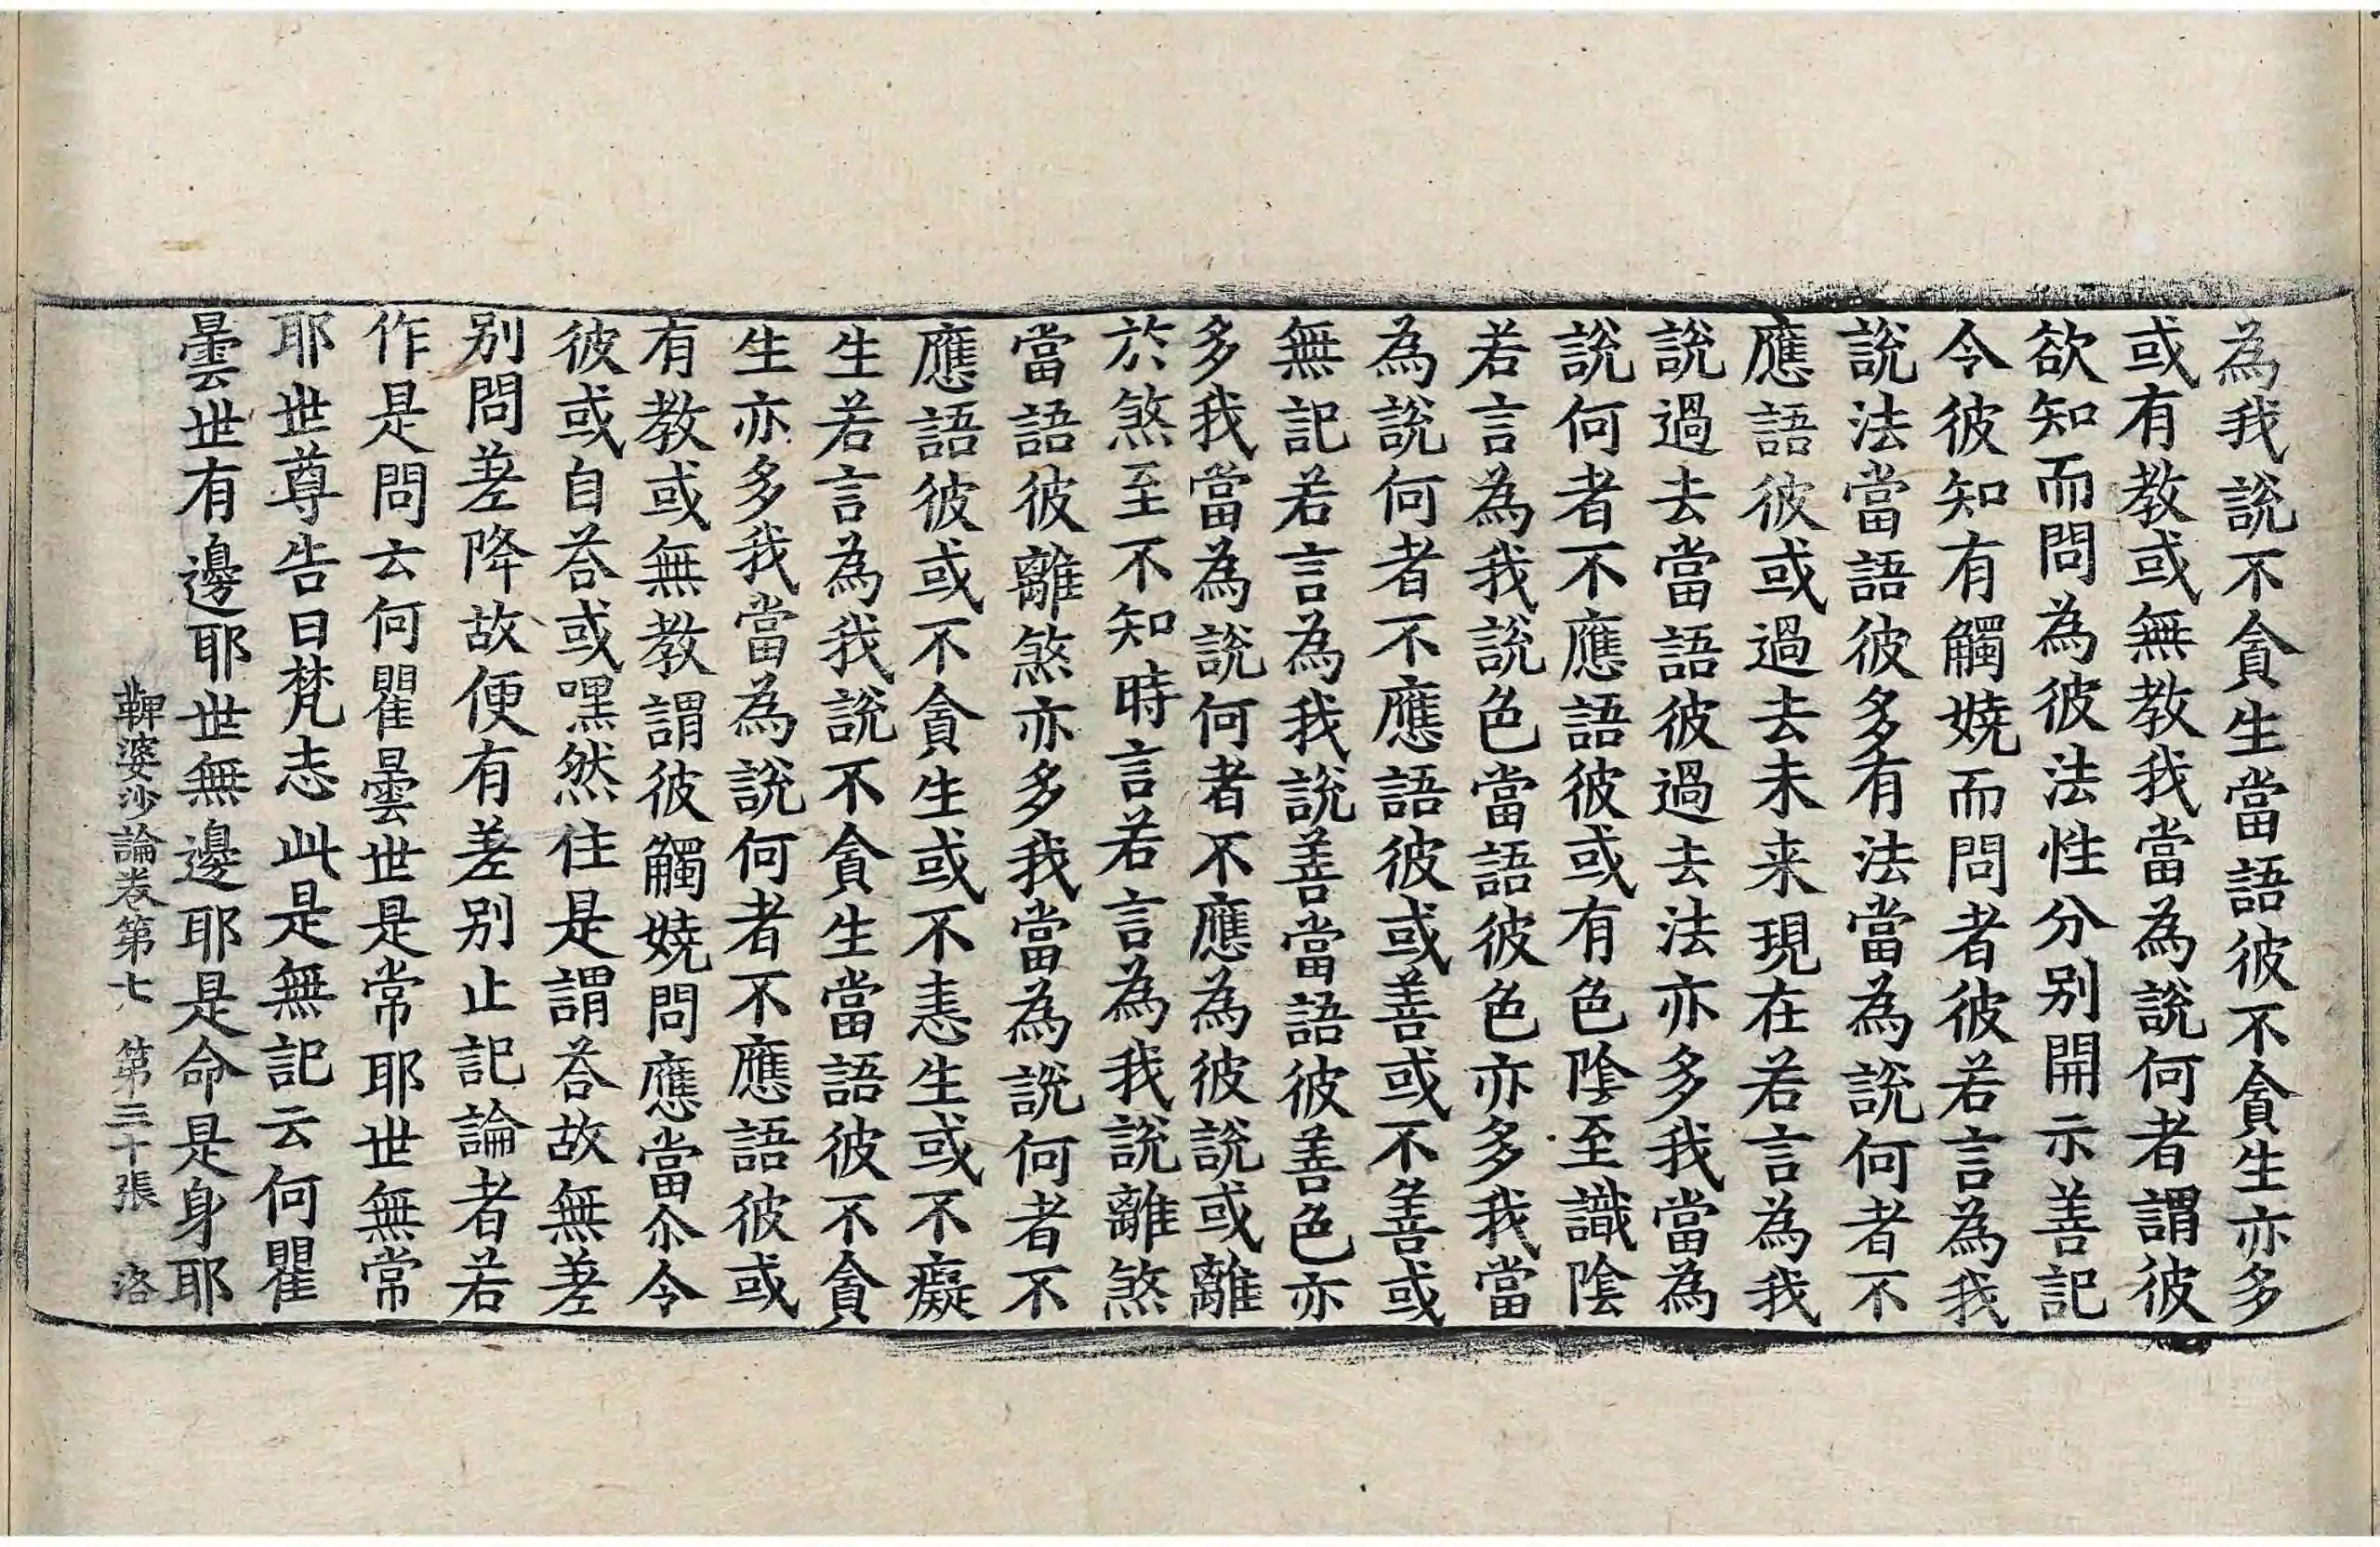 為我說不貪生當語彼不貪生亦多
或有教或無教我當為說何者謂彼
欲知而問為彼法性分別開示善記
令彼知有觸嬈而問者彼若言為我
說法當語彼多有法當為說何者不
應語彼或過去未来現在若言為我
說過去當語彼過去法亦多我當為
說何者不應語彼或有色陰至識陰
若言為我說色當語彼色亦多我當
為說何者不應語彼或善或不善或
無記若言為我說善當語彼善色亦
多我當為說何者不應為彼說或離
於煞至不知時言若言為我說離煞
當語彼離煞亦多我當為說何者不
應語彼或不貪生或不恚生或不癡
生若言為我說不貪生當語彼不貪
生亦多我當為說何者不應語彼或
有教或無教謂彼觸嬈問應當尒令
彼或自荅或嘿然往是謂荅故無差
別問差降故便有差別止記論者若
作是問云何瞿曇世是常耶世無常
耶世尊告曰梵志此是無記云何瞿
曇世有邊耶世無邊耶是命是身耶
鞞婆沙論卷第七 第三十張 洛